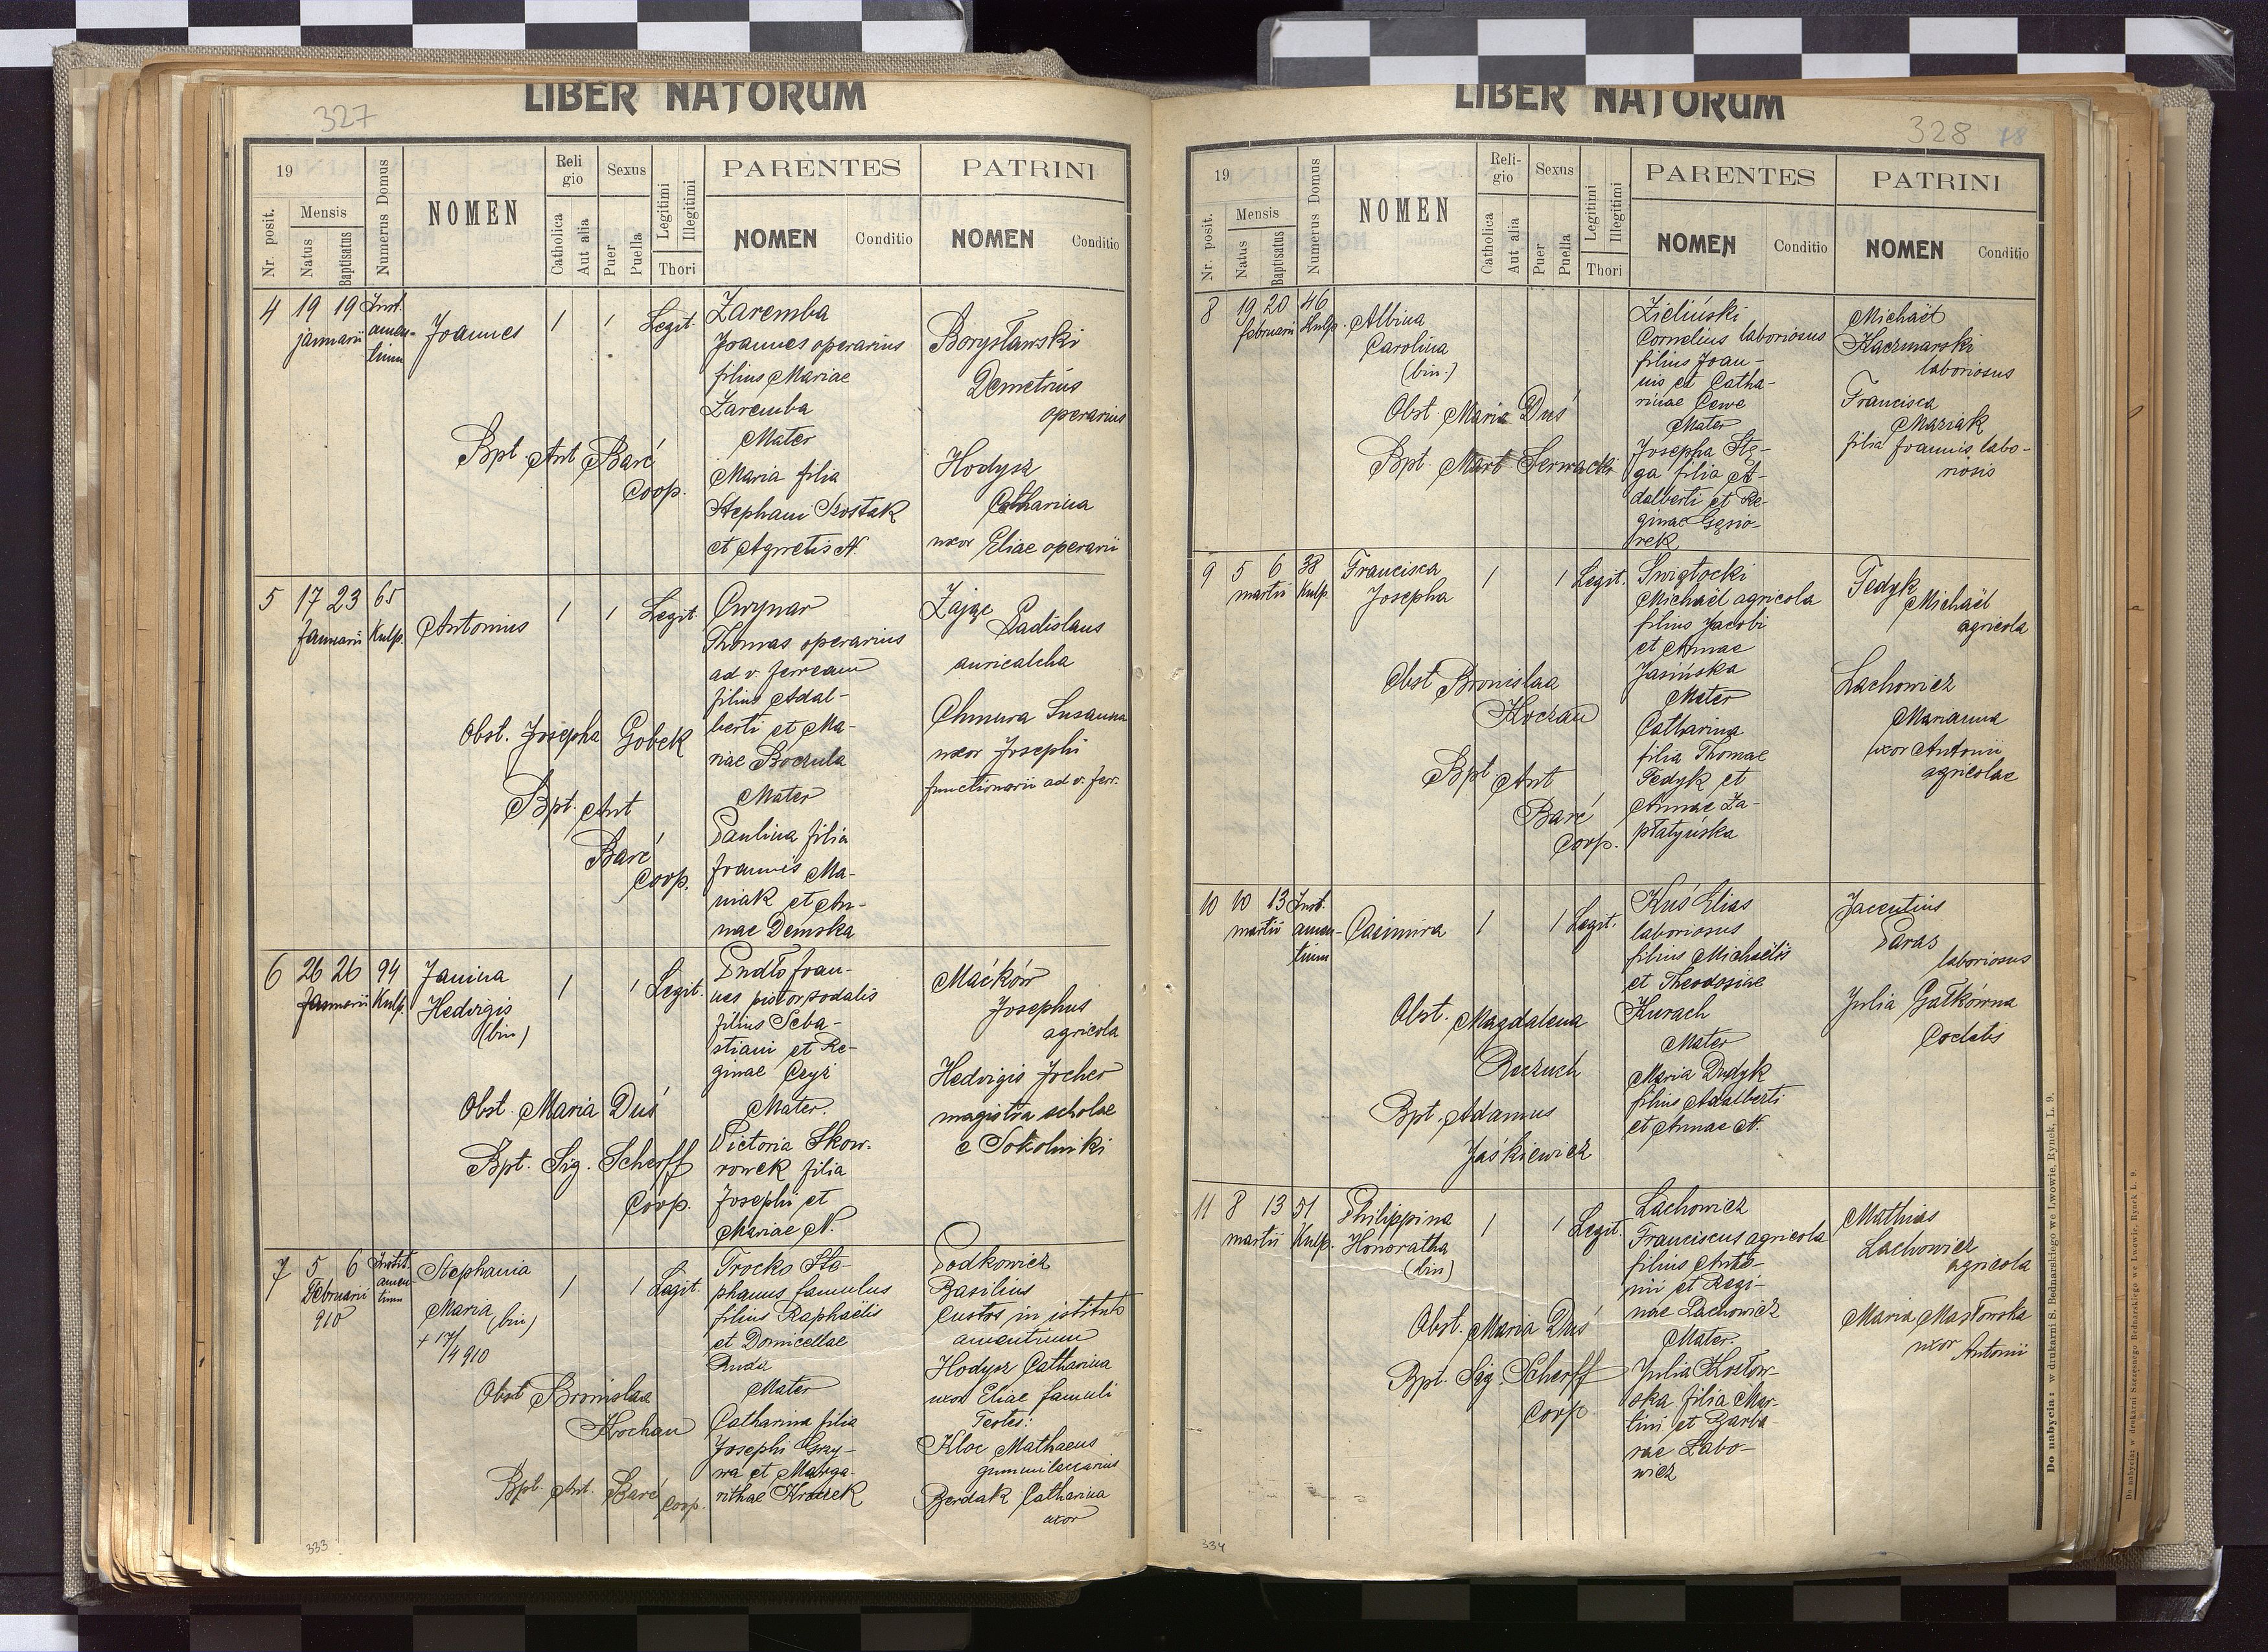 LIBER NATORUM
327
19
Nr. posit.
Mensis
Natus
Baptisatus
Numerus Domus
NOMEN
Reli
gio
Catholica
Aut alia
Sexus
Puer
Puella
Legitimi
Illegitimi
Thori
PARENTES
NOMEN
Conditio
PATRINI
NOMEN
Conditio
4
19 19
januarii
Inst.
amen-
tium
Joannes
1
1
Legit.
Zaremba
Joannes operarius
filius Mariae
Zaremba
Mater
Maria filia
Stephani Szostak
et Agnetis N.
Borysławski
Demetrius
operarius
Hodysz
Catharina
uxor Eliae operarii
Bpt. Ant Barć
Coop.
5
17 23
Januarii
65
Kulp.
Antonius
1
1
Legit.
Cwynar
Thomas operarius
ad v. ferream
filius Adal-
berti et Ma-
riae Boczula
Mater
Paulina filia
Joannis Ma-
niak et An-
nae Demska
Zając
Ladislaus
auricalcha
Chmura Susanna
uxor Josephi
functionarii ad v. ferr.
Obst. Josepha Gobek
Bpt. Ant
Barć
Coop.
6
26 26
Januarii
94
Kulp.
Janina
Hedvigis
(bin)
1
1
Legit.
Pudło Joan-
nes pistor sodalis
filius Seba-
stiani et Re-
ginae Czyż
Mater.
Victoria Skow-
ronek filia
Josephi et
Mariae N.
Maćków
Josephus
agricola
Hedvigis Jocher
magistra scholae
e Sokolniki
Obst. Maria Duś
Bpt. Sig. Scherff
Coop.
7
5 6
Februarii
910
Instit.
amen-
tium
Stephania
Maria (bin)
+ 17/4 910
1
1
Legit.
Trocko Ste-
phanus famulus
filius Raphaëlis
et Domicellae
Ruda
Mater
Catharina filia
Josephi Gray-
wa et Marga-
rithae Krozek
Podkowicz
Basilius
Custos in istituto
amentium
Hodysz Catharina
uxor Eliae famuli
Testes:
Kloc Mathaeus
gummilaccarius
Berdak Catharina
uxor
Obst Bronislaa
Kochan
Bpt. Ant. Barć Coop.
333
LIBER NATORUM
328 18
19
Nr. posit.
Mensis
Natus
Baptisatus
Numerus Domus
NOMEN
Reli-
gio
Catholica
Aut alia
Sexus
Puer
Puella
Legitimi
Illegitimi
Thori
PARENTES
NOMEN
Conditio
PATRINI
NOMEN
Conditio
8
19 20
februarii
46
Kulp.
Albina
Carolina
(bin.)
Zieliński
Cornelius laboriosus
filius Joan-
nis et Catha-
rinae Cewe
Mater
Josepha Stę-
ga filia A-
dalberti et Re-
ginae Gęsio-
rek
Michaël
Kaczmarski
laboriosus
Francisca
Maziak
filia Joannis labo-
riosis
Obst. Maria Duś
Bpt. Mart Serwacki
9
5 6
martii
38
Kulp.
Francisca
Josepha
1
1
Legit.
Swigłocki
Michaël agricola
filius Jacobi
et Annae
Jasińska
Mater
Catharina
filia Thomae
Fedyk et
Annae Za-
płatyńska
Fedyk
Michaël
agricola
Lachowicz
Marianna
uxor Antonii
agricolae
Obst Bronislaa
Koczan
Bpt Ant
Barć
Coop.
10
10 13
martii
Inst.
amen-
tium
Casimira
1
1
Legit.
Kuś Elias
laboriosus
filius Michaëlis
et Theodosiae
Kurach
Mater
Maria Dudyk
filius Adalberti
et Annae N.
Jacentius
Paras
laboriosus
Julia Gałkówna
Codelis
Obst. Magdalena
Roczuch
Bpt. Adamus
Jaśkiewicz
11
8 13
martii
51
Kulp.
Philippina
Honoratha
(bin)
1
1
Legit.
Lachowicz
Franciscus agricola
filius Anto-
nii et Regi-
nae Lachowicz
Mater.
Julia Kozłow-
ska filia Mar-
tini et Barba-
rae Labo-
wicz
Mathias
Lachowicz
agricola
Maria Masłowska
uxor
Antonii
Obst. Maria Duś
Bpt. Sig. Scherff
Coop
334
Do nabycia: w drukarni S. Bednarskiego we Lwowie, Rynek, L. 9.
Do nabycia: w drukarni Szczęsnego Bednarskiego we Lwowie, Rynek L. 9.